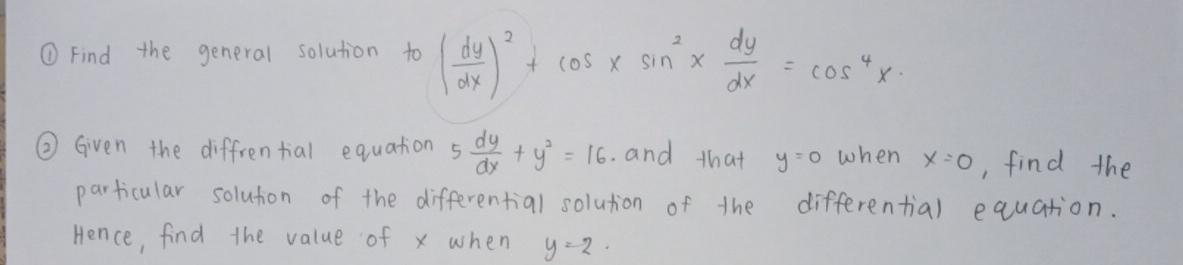 ① Find the general solution to (dy/dx)² + cos x sin² x dy/dx = cos⁴ x.
② Given the diffrential equation 5 dy/dx + y² = 16. and that y=0 when x=0, find the
particular solution of the differential solution of the differential equation.
Hence, find the value of x when y=2.